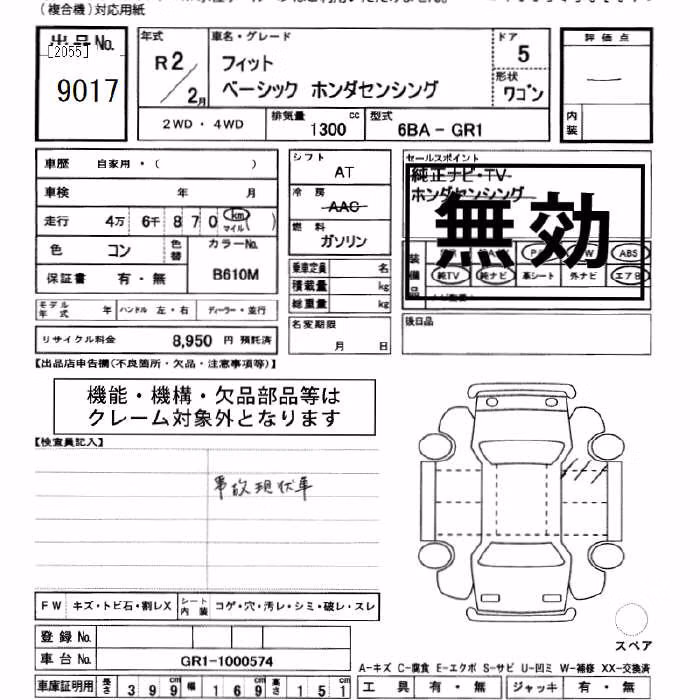 (複合機)対応用紙
出品No.
[2055]
9017
年式
R2
2月
車名・グレード
フィット
ベーシック ホンダセンシング
ドア
5
形状
ワゴン
評価点
内装
2WD・4WD
排気量
1300 cc
型式
6BA-GR1
車歴 自家用・( )
車検 年 月
走行 4万 6千 8 7 0 km マイル ( )
色 コン 色替 カラーNo.
B610M
保証書 有・無
モデル年式 年 ハンドル 左・右 ディーラー・並行
リサイクル料金 8,950 円 預託済
シフト
AT
冷房
AAC
燃料
ガソリン
乗車定員 名
積載量 kg
総重量 kg
名変期限
月 日
セールスポイント
純正ナビ・TV
ホンダセンシング
無効
装備品
ABS
純TV 純ナビ 革シート 外ナビ エアB
後日品
【出品店申告欄(不良箇所・欠品・注意事項等)】
機能・機構・欠品部品等は
クレーム対象外となります
【検査員記入】
事故現状車
FW キズ・トビ石・割レX シート内装 コゲ・穴・汚レ・シミ・破レ・スレ
登録No.
車台No. GR1-1000574
車庫証明用 長さ 399 cm 幅 169 cm 高さ 151
スペア
A-キズ C-腐食 E-エクボ S-サビ U-凹ミ W-補修 XX-交換済
工具 有・無 ジャッキ 有・無